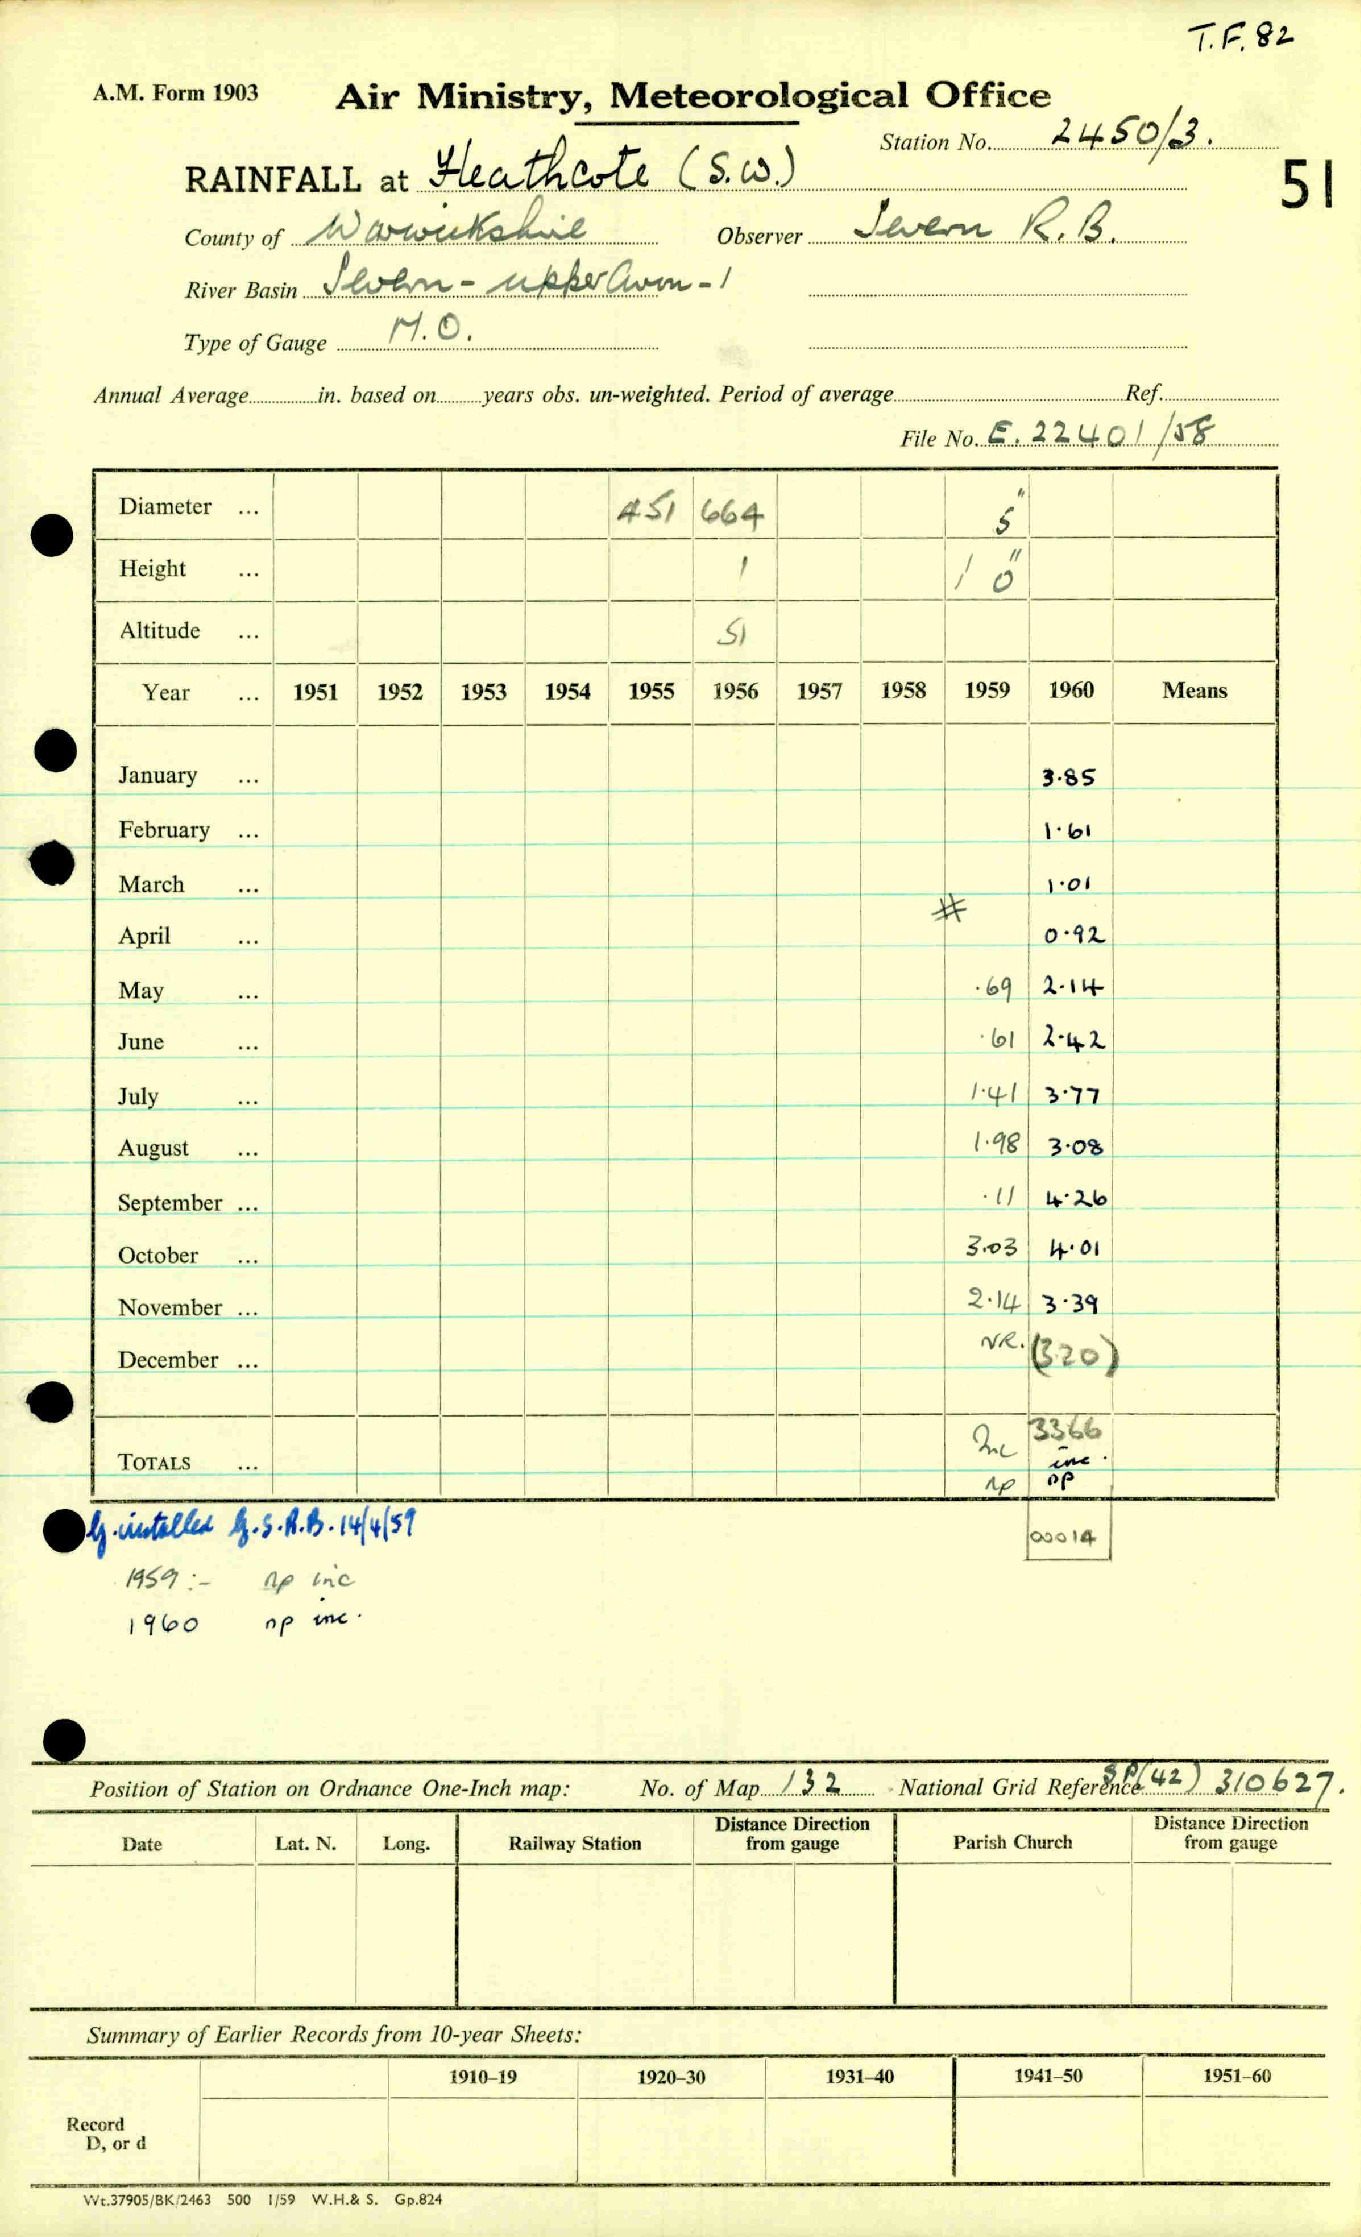 T.F. 82
A.M. Form 1903 Air Ministry, Meteorological Office
Station No. 2450/3.
RAINFALL at Heathcote (S.W.) 51
County of Warwickshire Observer Severn R.B.
River Basin Severn - upper Avon - 1
Type of Gauge M.O.
Annual Average in. based on years obs. un-weighted. Period of average Ref.
File No. E. 22401/58
Diameter ... 451 664 5"
Height ... 1 1 0"
Altitude ... 51
Year ... 1951 1952 1953 1954 1955 1956 1957 1958 1959 1960 Means
January ... 3.85
February ... 1.61
March ... 1.01
#
April ... 0.92
May ... .69 2.14
June ... .61 2.42
July ... 1.41 3.77
August ... 1.98 3.08
September ... .11 4.26
October ... 3.03 4.01
November ... 2.14 3.39
December ... N.R. (3.20)
TOTALS ... Inc 3366
inc.
np np
00014
G. installed G.S.R.B. 14/4/59
1959 :- np inc
1960 np inc.
Position of Station on Ordnance One-Inch map: No. of Map 132 National Grid Reference SP(42) 310627.
Date Lat. N. Long. Railway Station Distance Direction from gauge Parish Church Distance Direction from gauge
Summary of Earlier Records from 10-year Sheets:
1910-19 1920-30 1931-40 1941-50 1951-60
Record
D, or d
Wt.37905/BK/2463 500 1/59 W.H.& S. Gp.824